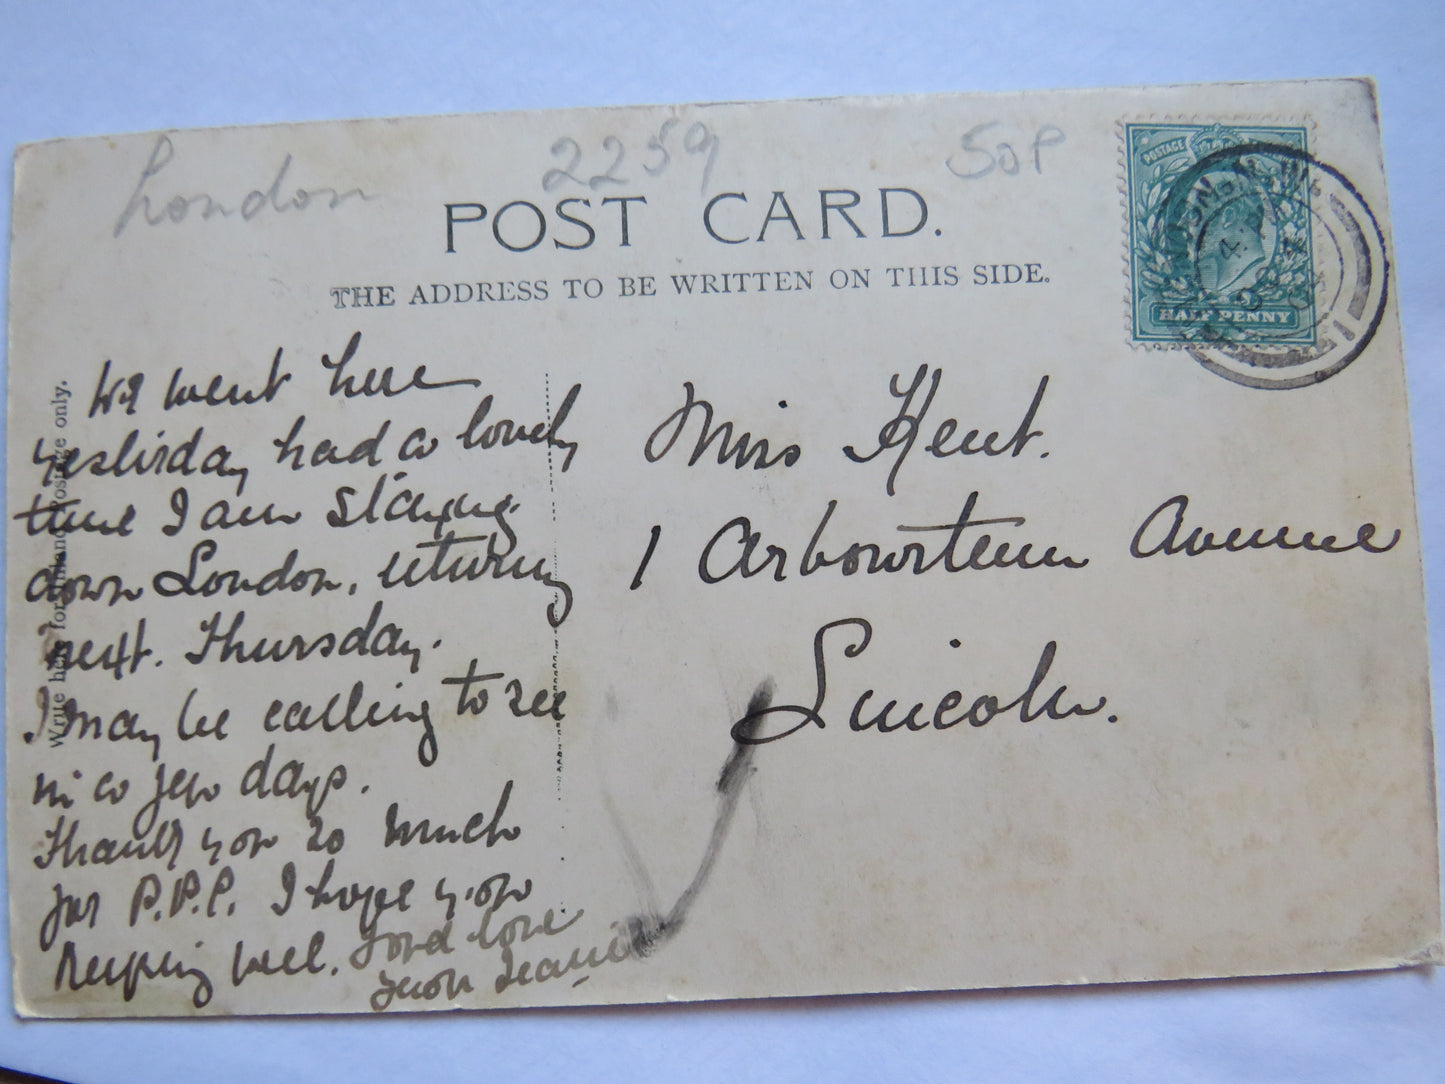 London
2259
50P
POST CARD.
THE ADDRESS TO BE WRITTEN ON THIS SIDE.
POSTAGE
HALF PENNY
Write here for Inland Postage only.
We went here
yesterday had a lovely
time I am staying
down London, returning
next. Thursday.
I may be calling to see
in a few days.
Thank you so much
for P.P.C. I hope you
keeping well. Fond love
from
Miss Kent.
1 Arbowrteum Avenue
Lincoln.